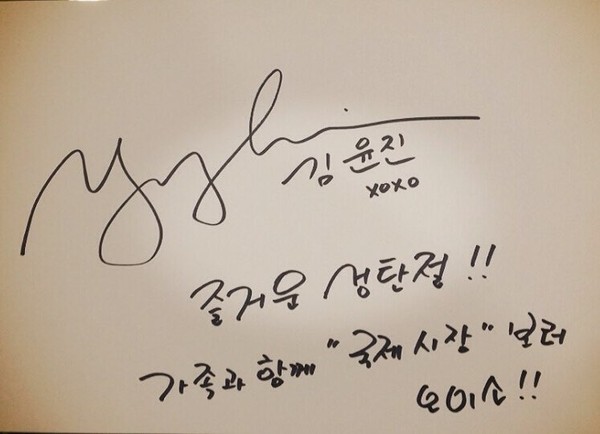 김윤진
xoxo
즐거운 성탄절!!
가족과 함께 "국제시장" 보러
오이소!!